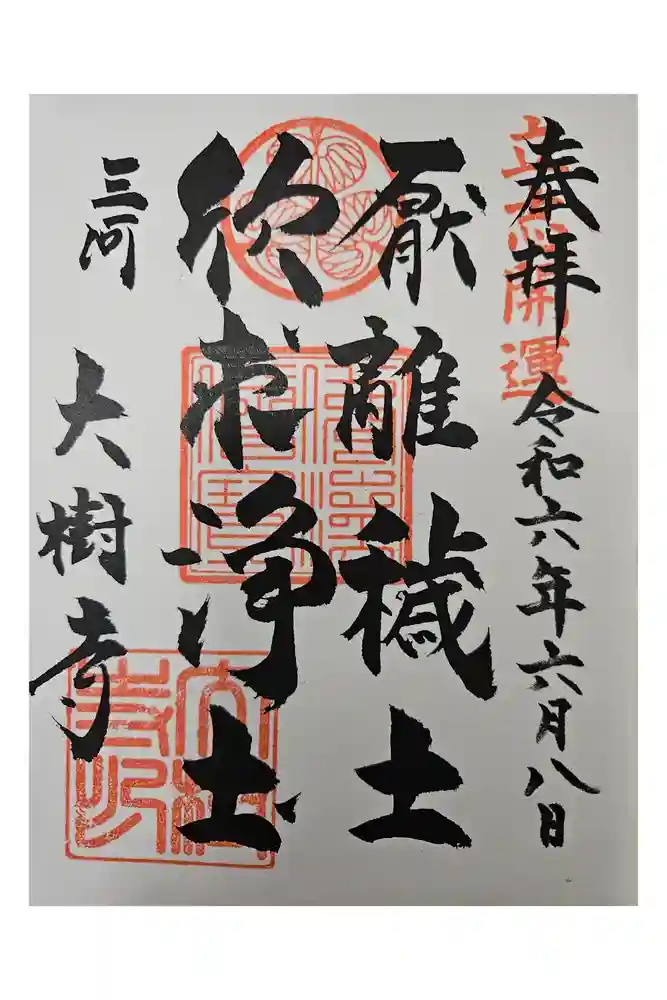 奉拝
開運
令和六年六月八日
厭離穢土
欣求浄土
三河
大樹寺